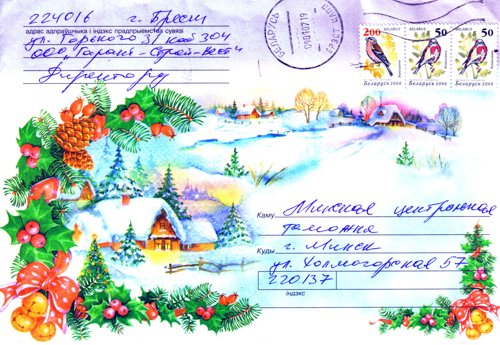 224016 г. Брест
адрас адпраўшчыка і індэкс прадпрыемства сувязі
ул. Горького 31 каб 304
ООО "Гарант-Строй-Вест"
Директору
БЕЛАРУСЬ
БРЕСТ
BELARUS
200
Беларусь 2006
BELARUS
50
Беларусь 2006
BELARUS
50
Беларусь 2006
Каму Минская центральная
таможня
Куды г. Минск
ул. Холмогорская 57
220137
індэкс